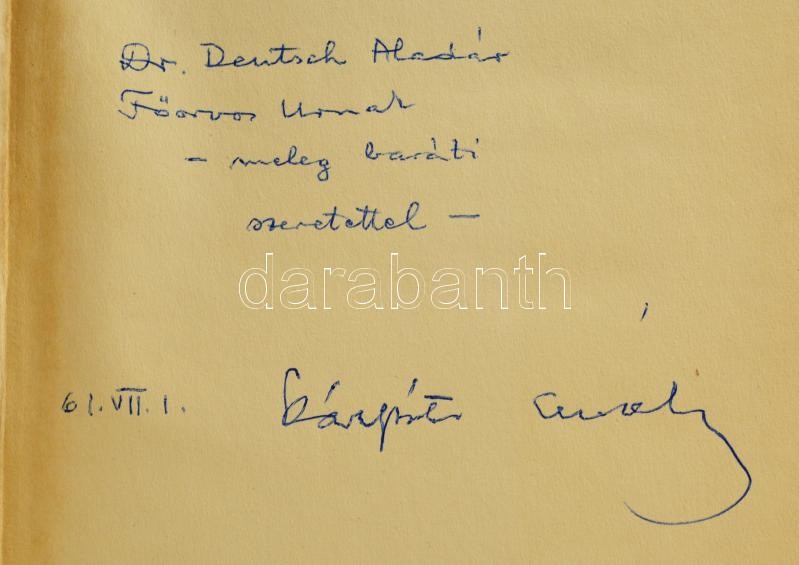 Dr. Deutsch Aladár
Főorvos Urnak
- meleg baráti
szeretettel -
darabanth
61. VII. 1. Kárpáti